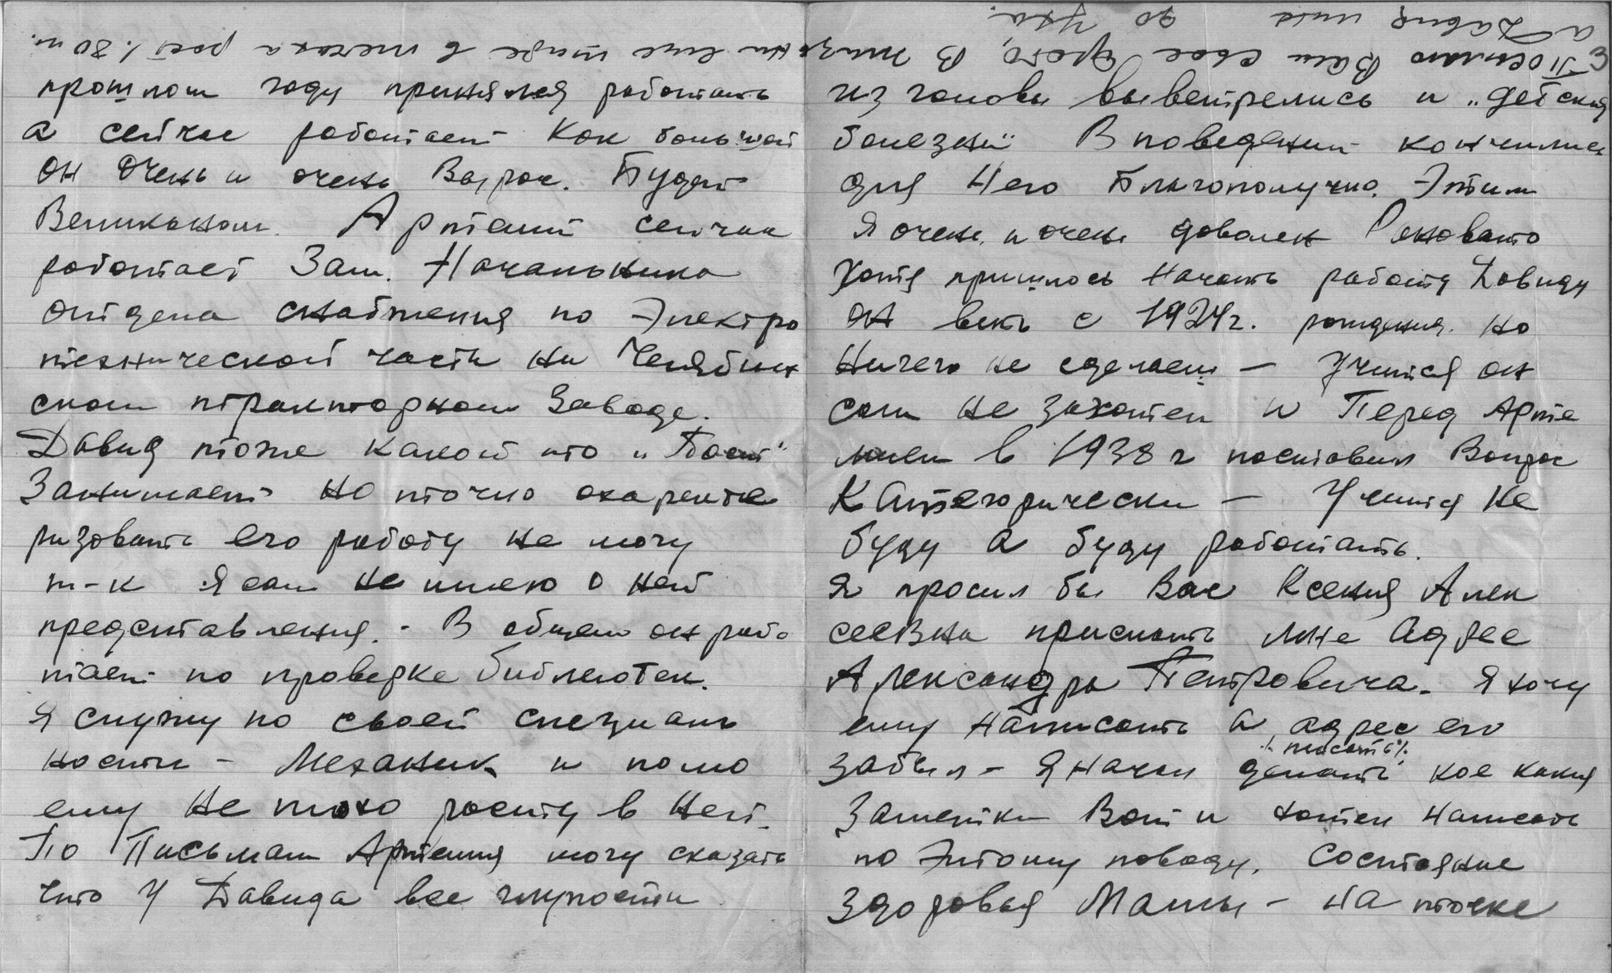 прошлом году принялся работать
а сейчас работает как большой
он очень и очень вырос. Будет
Великаном. Артемий сейчас
работает Зам. Начальника
отдела снабжения по Электро
технической части на Челябин
ском тракторном Заводе.
Давид тоже какой то „Пост"
Занимает но точно охаракте
ризовать его работу не могу
т-к я сам не имею о ней
представления. - В общем он рабо
тает по проверке библиотек.
Я служу по своей специаль
ности - Механик и помо
ему не плохо расту в ней.
По Письмам Артемия могу сказать
что у Давида все глупости
из головы выветрелись и „детския
болезни" В поведении кончились
для Него Благополучно. Этим
я очень и очень доволен Рановато
хотя пришлось Начать работу Давиду
он ведь с 1924 г. рождения. но
Ничего не сделаеш - Учится он
сам не захотел и Перед Арте
мием в 1938 г поставил Вопрос
Категорически - Учится Не
буду а буду работать.
Я просил бы Вас Ксения Алек
сеевна прислать мне Адрес
Александра Петровича. Я хочу
ему написать а адрес его
забыл - Я начал делать „писать" кое какия
Заметки Вот и хотел написать
по Этому поводу. Состояние
Здоровья Мамы - на точке
Посылаю Вам свое фото, В жизни еще толще в плечах рост 1.80 м.
а Давид мне до уха.